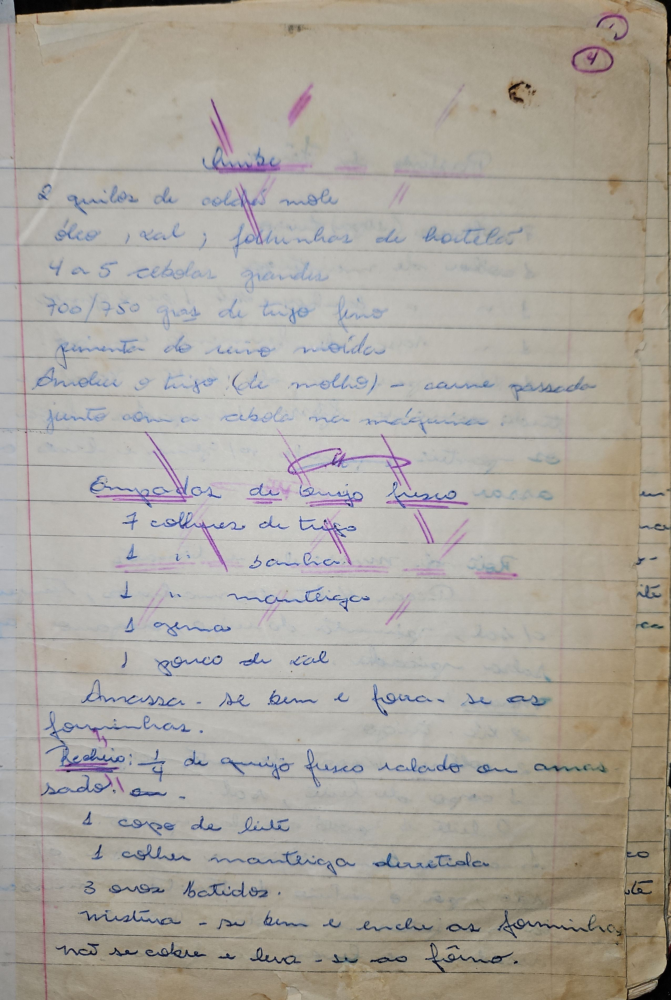 4
Quibe
2 quilos de colchão mole
óleo, sal, folhinhas de hortelã
4 a 5 cebolas grandes
700/750 grs de trigo fino
pimenta do reino moída
Amolece o trigo (de molho) - carne passada
junto com a cebola na máquina
Empadas de queijo fresco
7 colheres de trigo
1 " banha
1 " manteiga
1 gema
1 pouco de sal
Amassa-se bem e forra-se as
forminhas.
Recheio: 1/4 de queijo fresco ralado ou amas
sado.
1 copo de leite
1 colher manteiga derretida
3 ovos batidos.
mistura-se bem e enche as forminhas
não se cobre e leva-se ao fôrno.